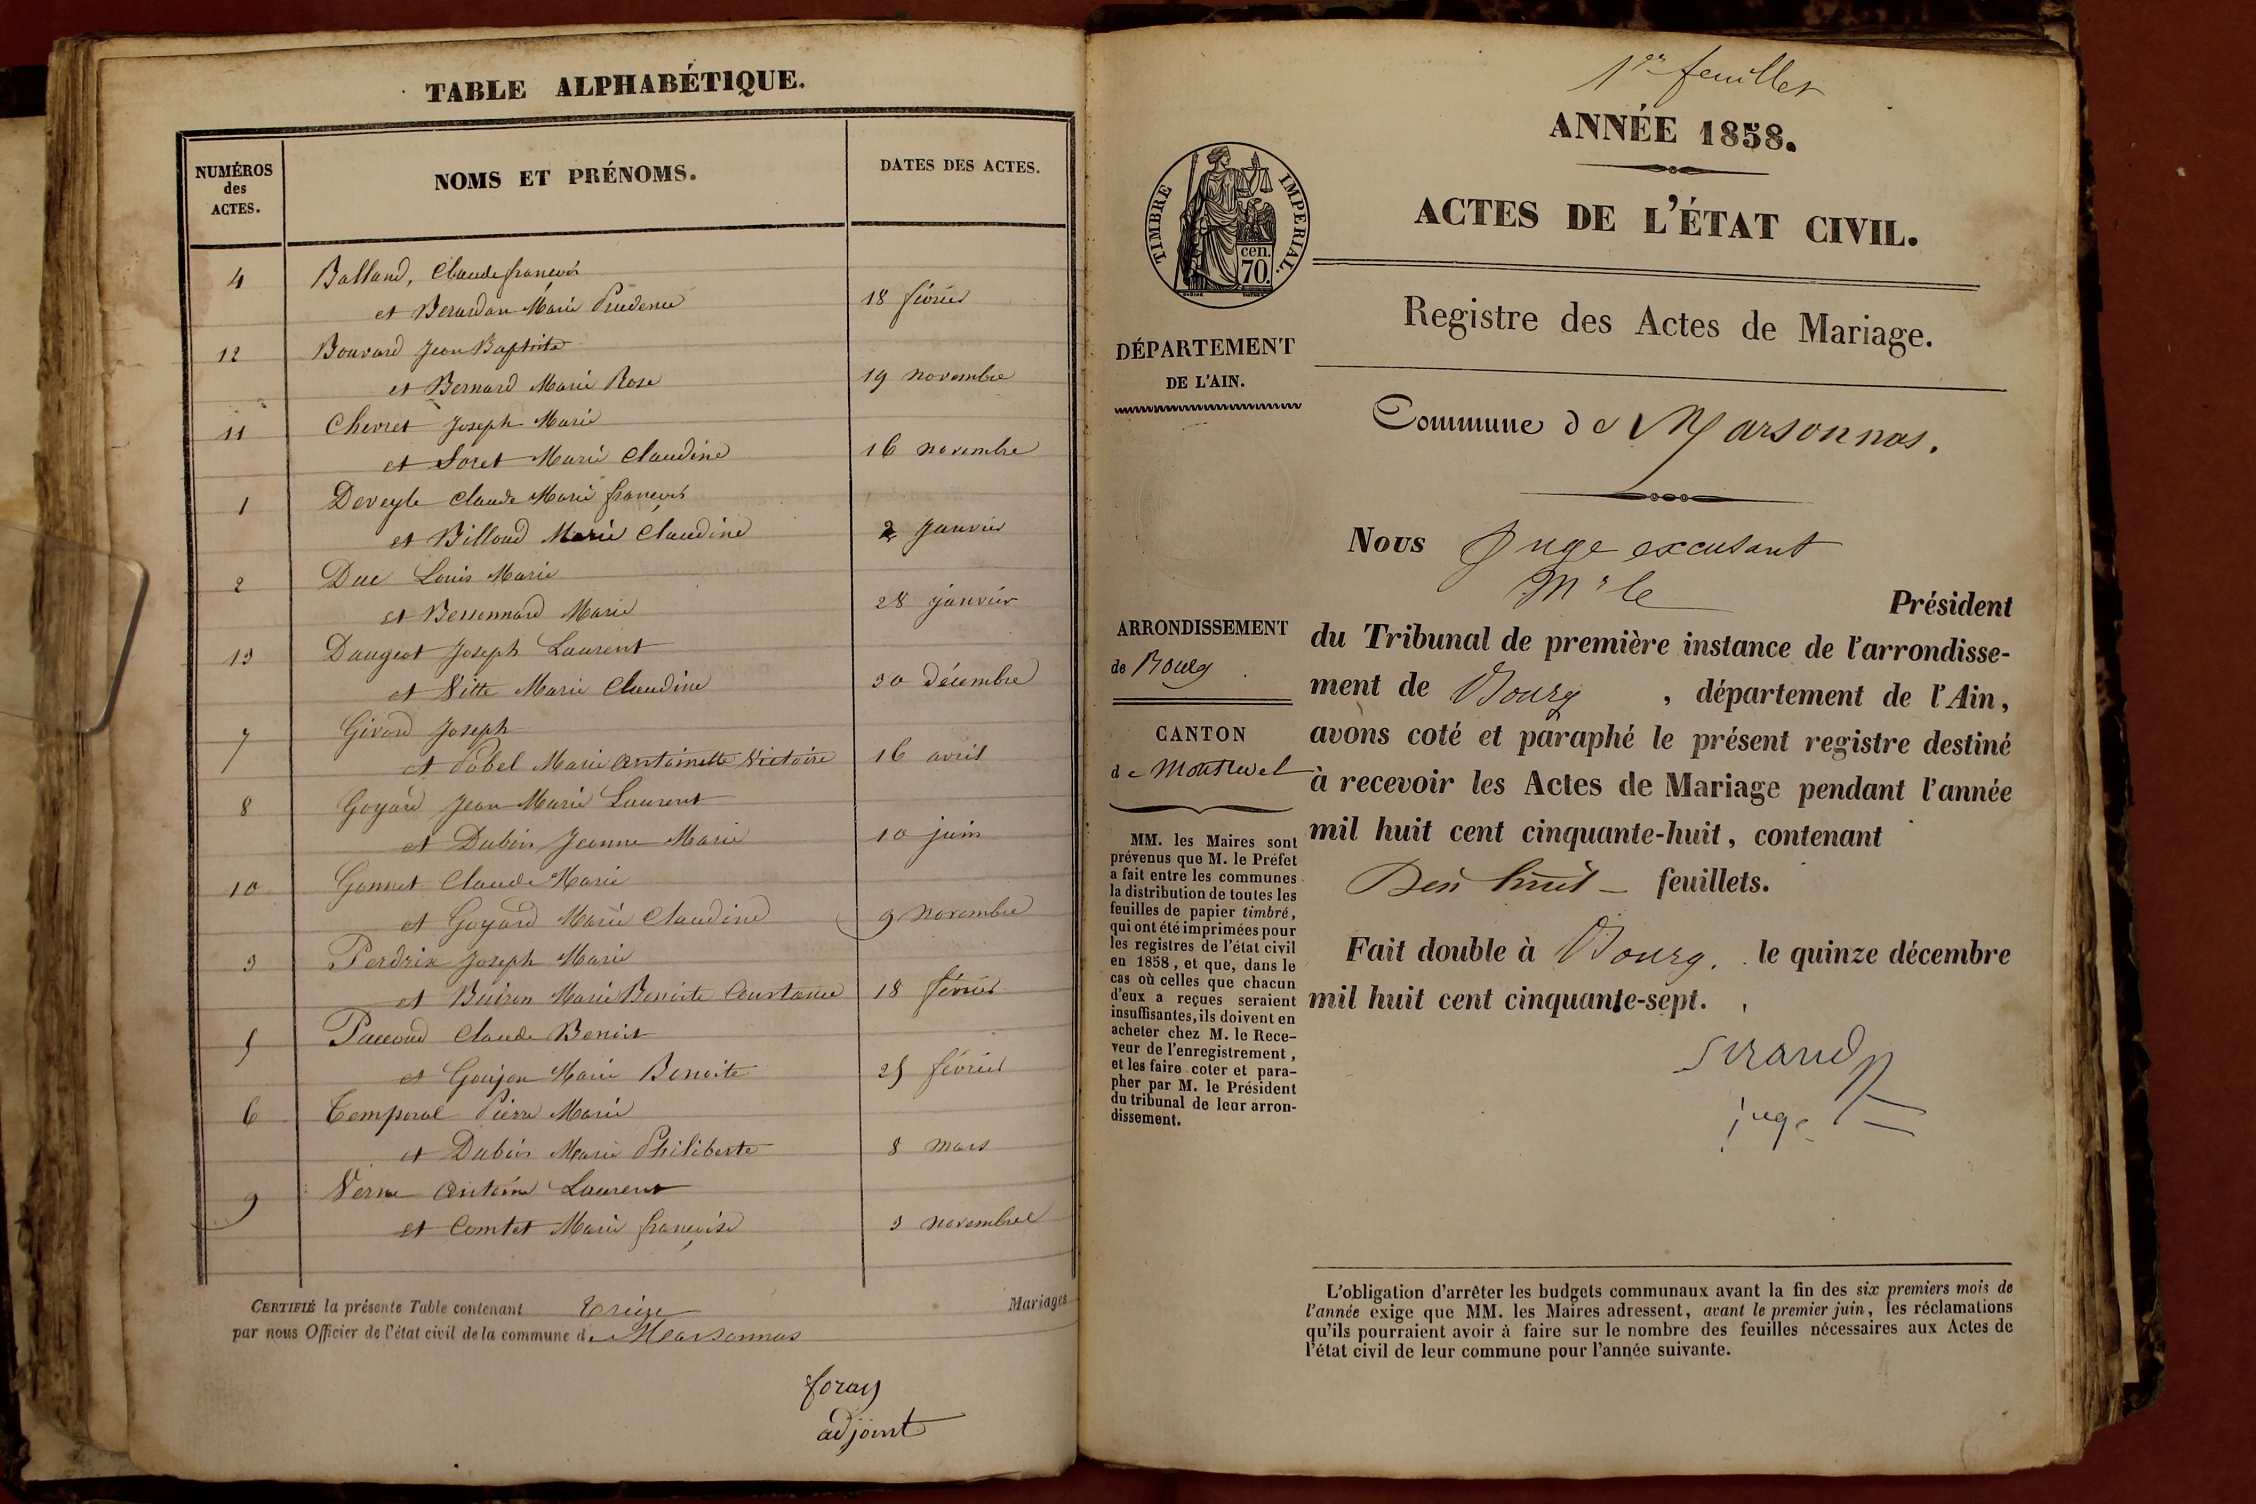 TABLE ALPHABÉTIQUE.
NUMÉROS
des
ACTES.
NOMS ET PRÉNOMS.
DATES DES ACTES.
4 Balland, Claude françois
et Berardan Marie Prudence 18 février
12 Bouvard Jean Baptiste
et Bernard Marie Rose 19 novembre
11 Chevret Joseph Marie
et Soret Marie Claudine 16 novembre
1 Deveyle Claude Marie françois
et Billoud Marie Claudine 2 Janvier
2 Duc Louis Marie
et Bessonnard Marie 28 janvier
13 Daugeot Joseph Laurent
et Vitte Marie Claudine 30 décembre
7 Givord Joseph
et Pobel Marie antoinette Victoire 16 avril
8 Goyard Jean Marie Laurent
et Dubois Jeanne Marie 10 juin
10 Gonnet Claude Marie
et Goyard Marie Claudine 9 novembre
3 Perdrix Joseph Marie
et Buiron Marie Benoite Constance 18 février
5 Paccoud Claude Benoit
et Goujon Marie Benoite 25 février
6 Temporal Pierre Marie
et Dubois Marie Philiberte 8 mars
9 Verne antoine Laurent
et Comtet Marie françoise 3 novembre
CERTIFIÉ la présente Table contenant treize Mariages
par nous Officier de l'état civil de la commune de Marsonnas
foray
adjoint
1er feuillet
ANNÉE 1858.
TIMBRE IMPERIAL.
cen.
70.
ACTES DE L'ÉTAT CIVIL.
Registre des Actes de Mariage.
DÉPARTEMENT
DE L'AIN.
Commune de Marsonnas.
Nous Juge excusant
Mr le Président
du Tribunal de première instance de l'arrondisse-
ment de Bourg, département de l'Ain,
avons coté et paraphé le présent registre destiné
à recevoir les Actes de Mariage pendant l'année
mil huit cent cinquante-huit, contenant
Dix huit feuillets.
Fait double à Bourg. le quinze décembre
mil huit cent cinquante-sept.
Sirand
juge
ARRONDISSEMENT
de Bourg
CANTON
de Montrevel
MM. les Maires sont
prévenus que M. le Préfet
a fait entre les communes
la distribution de toutes les
feuilles de papier timbré,
qui ont été imprimées pour
les registres de l'état civil
en 1858, et que, dans le
cas où celles que chacun
d'eux a reçues seraient
insuffisantes, ils doivent en
acheter chez M. le Rece-
veur de l'enregistrement,
et les faire coter et para-
pher par M. le Président
du tribunal de leur arron-
dissement.
L'obligation d'arrêter les budgets communaux avant la fin des six premiers mois de
l'année exige que MM. les Maires adressent, avant le premier juin, les réclamations
qu'ils pourraient avoir à faire sur le nombre des feuilles nécessaires aux Actes de
l'état civil de leur commune pour l'année suivante.